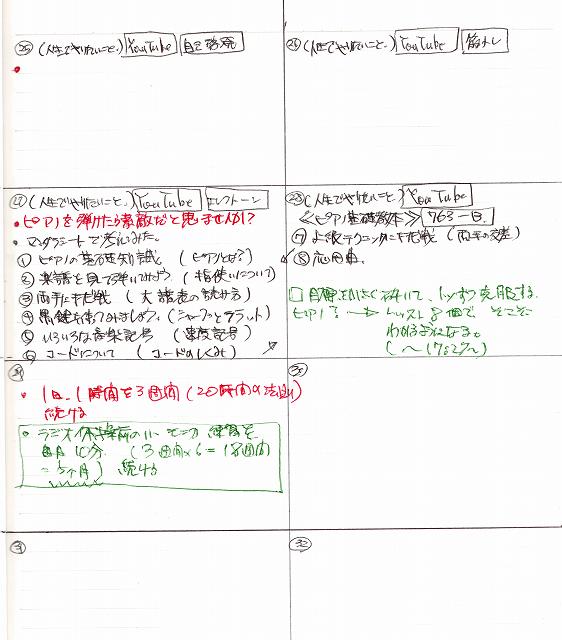 ㉕ (人生でやりたいこと。) YouTube 自己啓発
㉖ (人生でやりたいこと。) YouTube 筋トレ
㉗ (人生でやりたいこと。) YouTube エレクトーン
・ピアノを弾けたら素敵だと思いませんか?
・マンダラシートで考えてみた。
① ピアノの基礎知識 (ピアノとは?)
② 楽譜を見て弾いてみよう (指使いについて)
③ 両手に挑戦 (大譜表の読み方)
④ 黒鍵を使ってみましょう。(シャープとフラット)
⑤ いろいろな音楽記号 (速度記号)
⑥ コードについて (コードのしくみ)
㉘ (人生でやりたいこと。) YouTube
≪ピアノ基礎教本≫ 763一日。
⑦ よく テクニックに挑戦 (両手の交差)
⑧ 応用曲。
□ 目標を 砕いて、1つずつ克服する。
ピアノ → レッスン 8個で、そこそこ
わかるようになる。
㉙
・1日、1時間を3週間 (20時間の法則)
続ける
・ラジオ体操前の 練習を
10分 (3週間×6=18週間
) 続ける
㉚
㉛
㉜